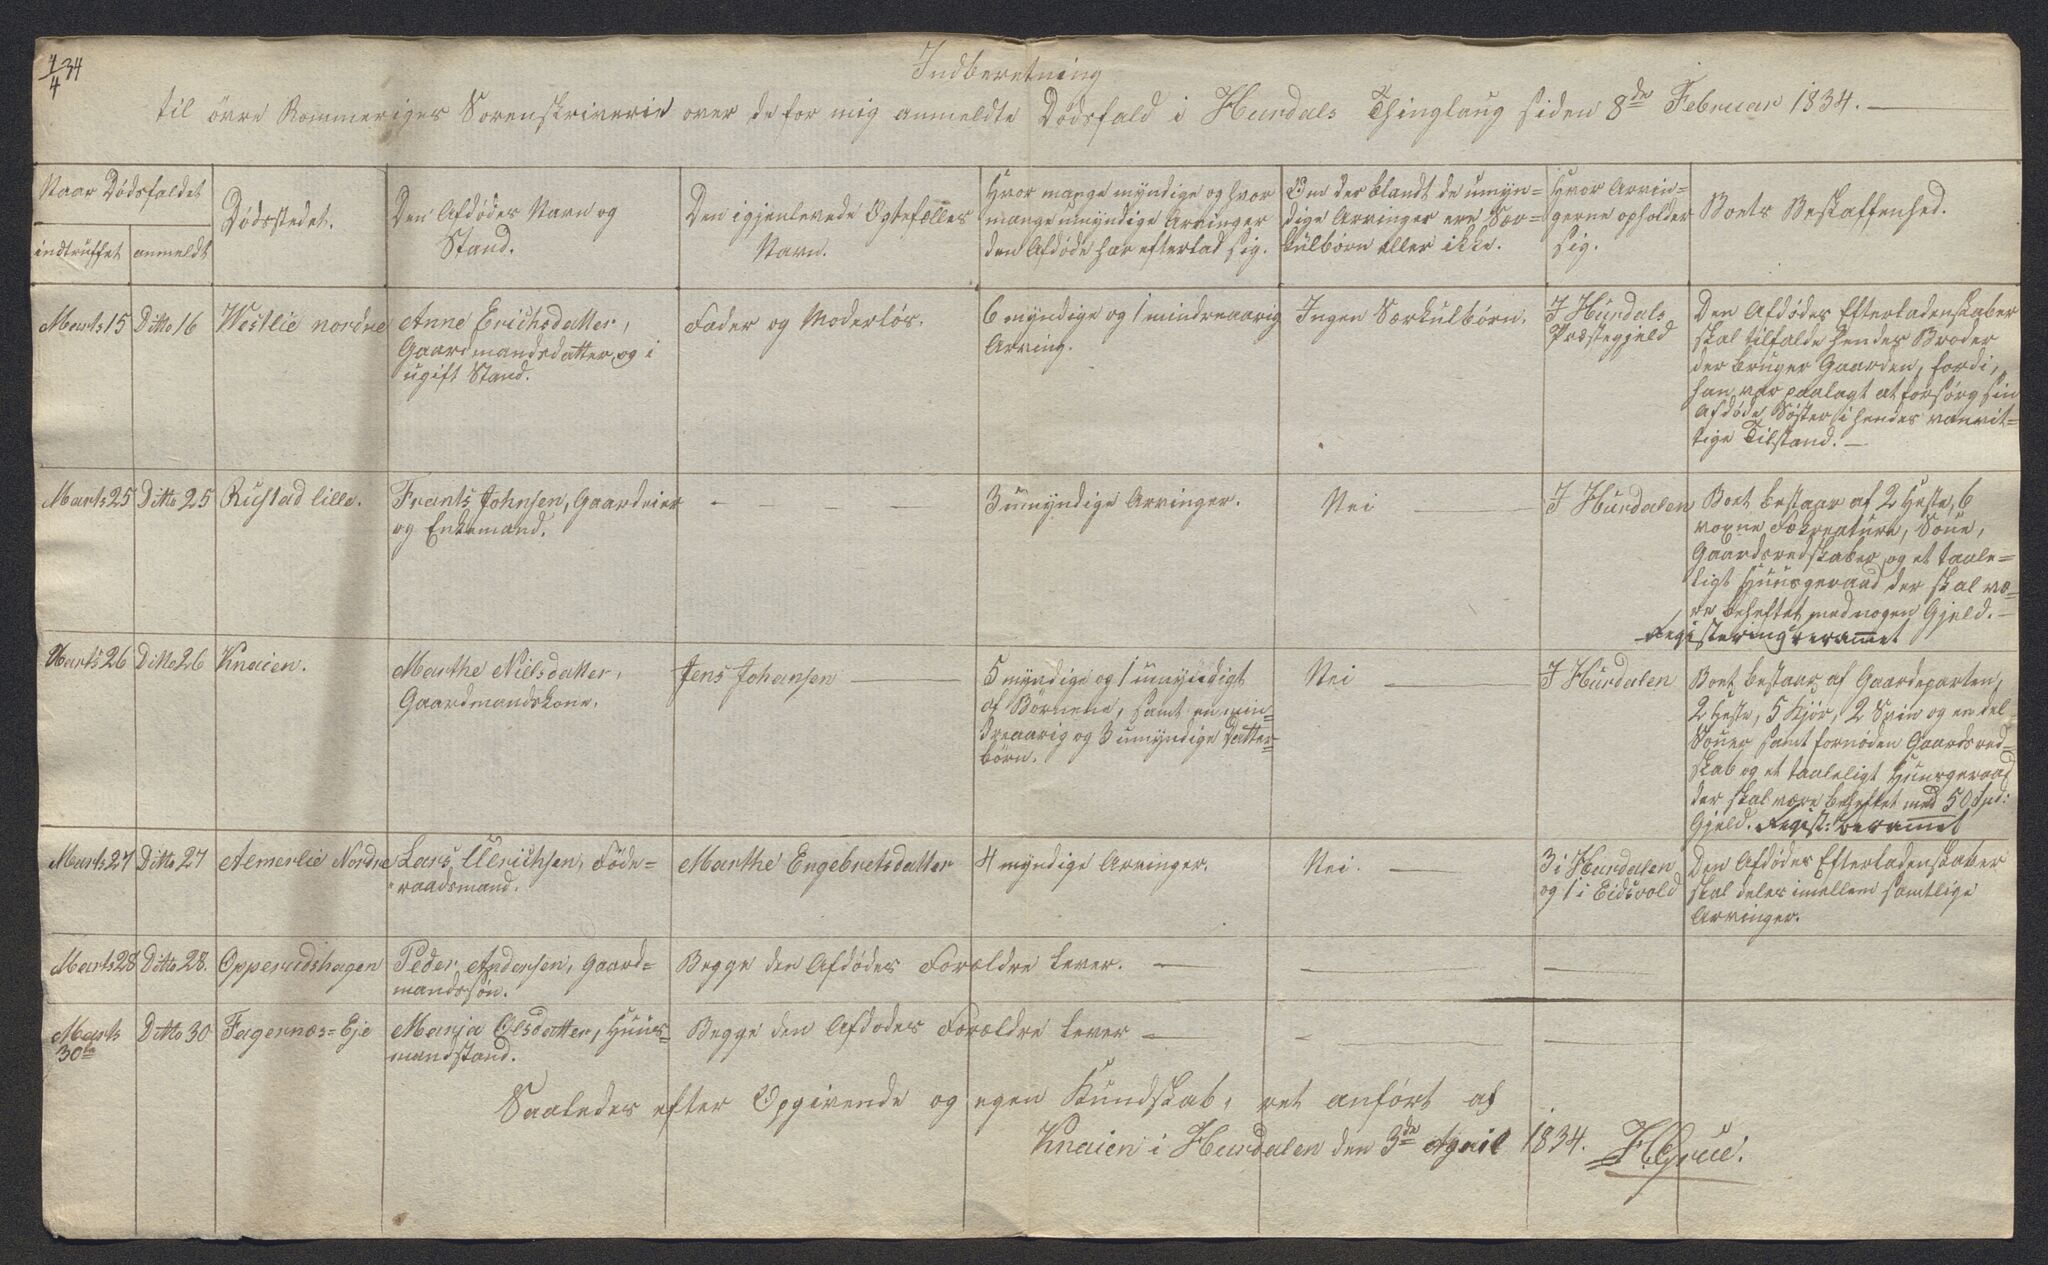 4/4 34
Indberetning
til övre Rommeriges Sorenskriverie over de for mig anmeldte Dødsfald i Hurdals Thinglaug siden 8de Februar 1834.
Naar Dödsfaldet
indtruffet
anmeldt
Dödsstedet.
Den Afdödes Navn og
Stand.
Den igjenlevede Ægtefælles
Navn.
Hvor mange myndige og hvor
mange umyndige Arvinger
den Afdöde har efterlad sig.
Om der blandt de umyn=
dige Arvinger ere Sær=
kulbörn eller ikke.
Hvor Arvin=
gerne opholder
sig.
Boets Beskaffenhed.
Marts 15
Ditto 16
Westlie nordre
Anne Erichsdatter,
Gaardmandsdatter, og i
ugift Stand.
Fader og Moderlös.
6 myndige og 1 mindreaarig
Arving.
Ingen Særkulbörn.
I Hurdals
Præstegjeld
Den Afdödes Efterladenskaber
skal tilfalde hendes Broder
der bruger Gaarden, fordi,
han var paalagt at forsörg sin
Afdöde Söster i hendes vanvit=
tige Tilstand. —
Marts 25
Ditto 25
Rustad lille.
Frants Johnsen, Gaardeier
og Enkemand.
— — — —
3 umyndige Arvinger.
Nei —
I Hurdalen
Boet bestaar af 2 Heste, 6
voxne Fækreature, Soue,
Gaardsredskaber, og et taale=
ligt Huusgeraad der skal væ=
re beheftet med nogen Gjeld. —
Registering berammet
Marts 26
Ditto 26
Knaien.
Marthe Nielsdatter,
Gaardmandskone.
Jens Johansen —
5 myndige og 1 umyndigt
af Börnene, samt en min=
dreaarig og 3 umyndige Datter=
börn.
Nei —
I Hurdalen
Boet bestaar af Gaardeparten,
2 Heste, 5 Kjör, 2 Svin og en del
Souer samt fornöden Gaardsred=
skab og et taaleligt Huusgeraad
der skal være beheftet med 50 Spd:
Gjeld. Regist: berammet
Marts 27
Ditto 27
Almerlie Nordre
Lars Ulrichsen, Föde=
raadsmand.
Marthe Engebretsdatter
4 myndige Arvinger.
Nei. —
3 i Hurdalen
og 1 i Eidsvold
Den Afdödes Efterladenskaber
skal deles imellem samtlige
Arvinger.
Marts 28
Ditto 28.
Opperudshagen
Peder Andersen, Gaard=
mandssön.
Begge den Afdödes Forældre lever. —
Marts
30te
Ditto 30
Fagernæs=Eje
Manja Olsdatter, Huus=
mandstand.
Begge den Afdödes Forældre lever —
Saaledes efter Opgivende og egen Kundskab, ret anfört af
Knaien i Hurdalen den 3de April 1834.